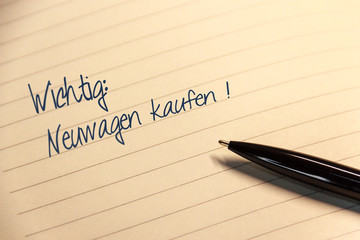 Wichtig:
Neuwagen kaufen !